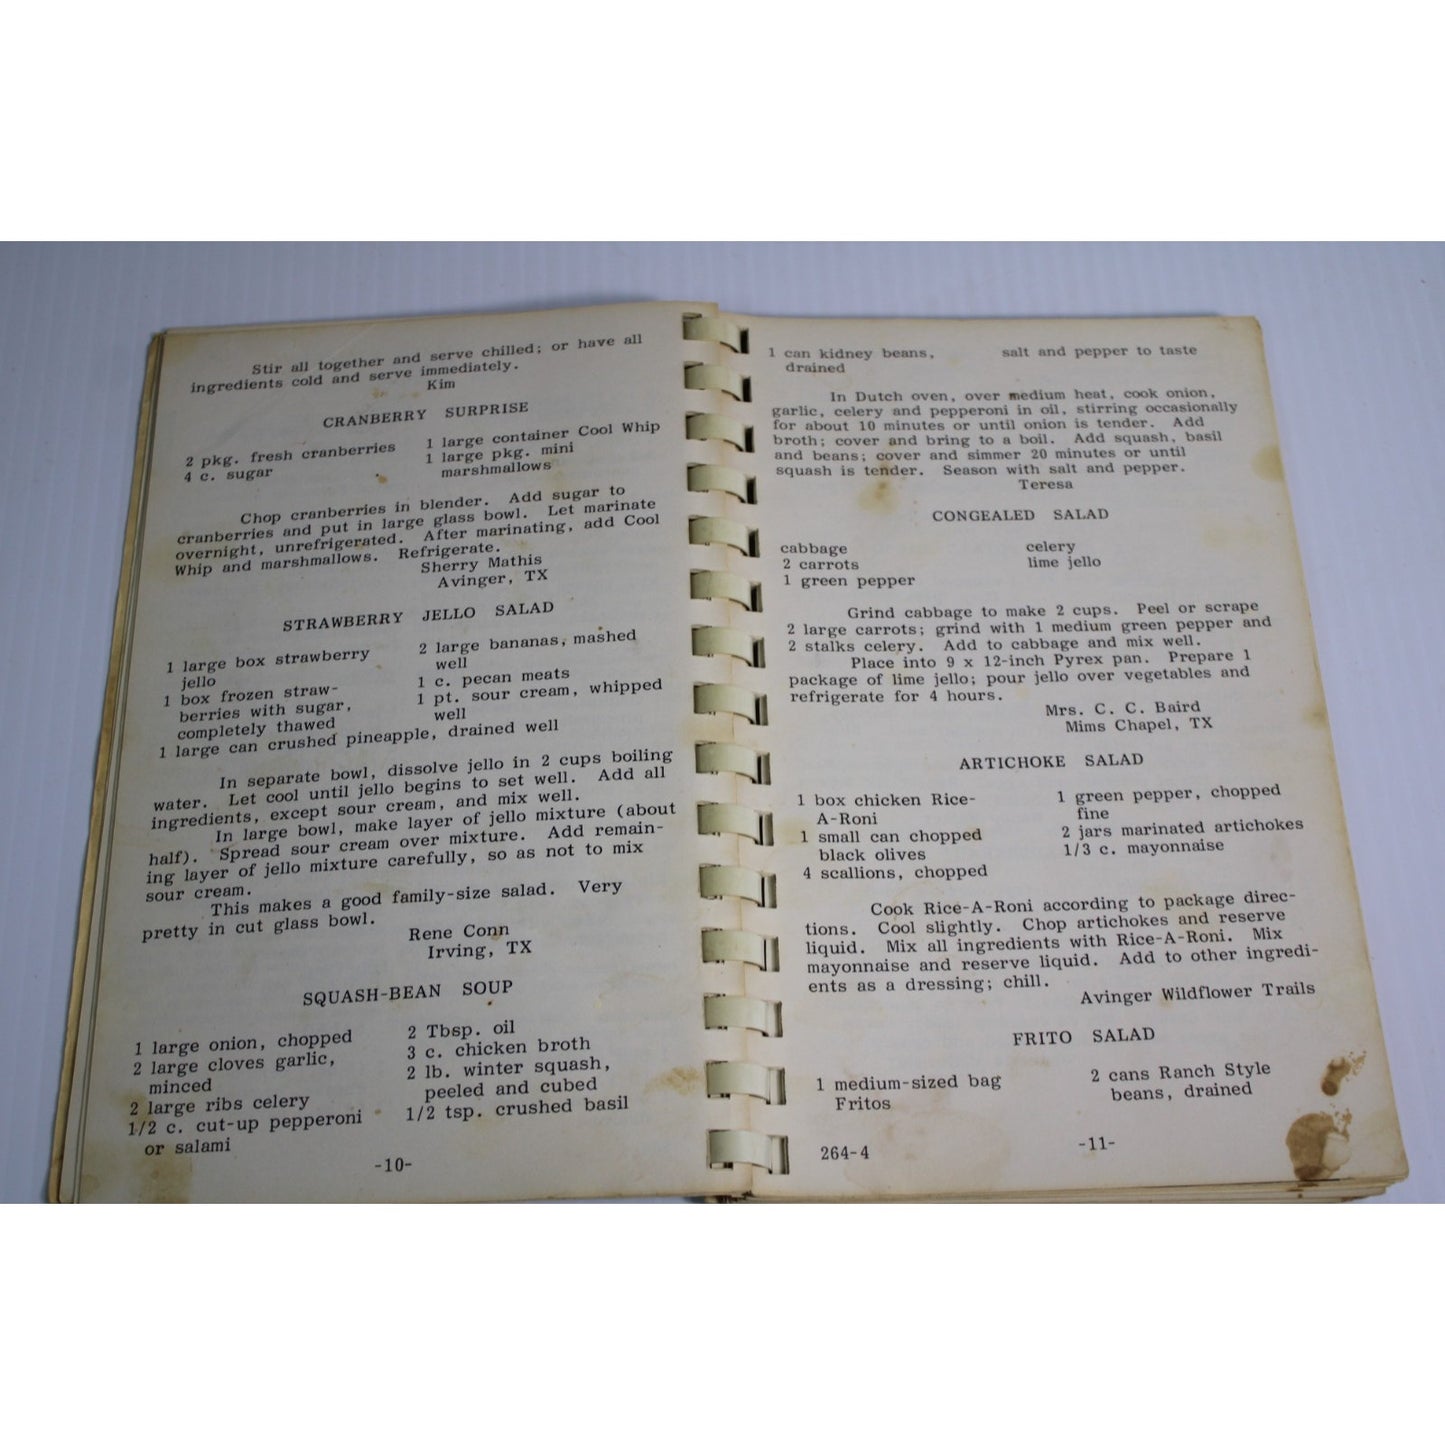 Stir all together and serve chilled; or have all
ingredients cold and serve immediately.
Kim
CRANBERRY SURPRISE
2 pkg. fresh cranberries
4 c. sugar
1 large container Cool Whip
1 large pkg. mini
marshmallows
Chop cranberries in blender. Add sugar to
cranberries and put in large glass bowl. Let marinate
overnight, unrefrigerated. After marinating, add Cool
Whip and marshmallows. Refrigerate.
Sherry Mathis
Avinger, TX
STRAWBERRY JELLO SALAD
1 large box strawberry
jello
1 box frozen straw-
berries with sugar,
completely thawed
2 large bananas, mashed
well
1 c. pecan meats
1 pt. sour cream, whipped
well
1 large can crushed pineapple, drained well
In separate bowl, dissolve jello in 2 cups boiling
water. Let cool until jello begins to set well. Add all
ingredients, except sour cream, and mix well.
In large bowl, make layer of jello mixture (about
half). Spread sour cream over mixture. Add remain-
ing layer of jello mixture carefully, so as not to mix
sour cream.
This makes a good family-size salad. Very
pretty in cut glass bowl.
Rene Conn
Irving, TX
SQUASH-BEAN SOUP
1 large onion, chopped
2 large cloves garlic,
minced
2 large ribs celery
1/2 c. cut-up pepperoni
or salami
2 Tbsp. oil
3 c. chicken broth
2 lb. winter squash,
peeled and cubed
1/2 tsp. crushed basil
-10-
1 can kidney beans,
drained
salt and pepper to taste
In Dutch oven, over medium heat, cook onion,
garlic, celery and pepperoni in oil, stirring occasionally
for about 10 minutes or until onion is tender. Add
broth; cover and bring to a boil. Add squash, basil
and beans; cover and simmer 20 minutes or until
squash is tender. Season with salt and pepper.
Teresa
CONGEALED SALAD
cabbage
2 carrots
1 green pepper
celery
lime jello
Grind cabbage to make 2 cups. Peel or scrape
2 large carrots; grind with 1 medium green pepper and
2 stalks celery. Add to cabbage and mix well.
Place into 9 x 12-inch Pyrex pan. Prepare 1
package of lime jello; pour jello over vegetables and
refrigerate for 4 hours.
Mrs. C. C. Baird
Mims Chapel, TX
ARTICHOKE SALAD
1 box chicken Rice-
A-Roni
1 small can chopped
black olives
4 scallions, chopped
1 green pepper, chopped
fine
2 jars marinated artichokes
1/3 c. mayonnaise
Cook Rice-A-Roni according to package direc-
tions. Cool slightly. Chop artichokes and reserve
liquid. Mix all ingredients with Rice-A-Roni. Mix
mayonnaise and reserve liquid. Add to other ingredi-
ents as a dressing; chill.
Avinger Wildflower Trails
FRITO SALAD
1 medium-sized bag
Fritos
2 cans Ranch Style
beans, drained
264-4
-11-